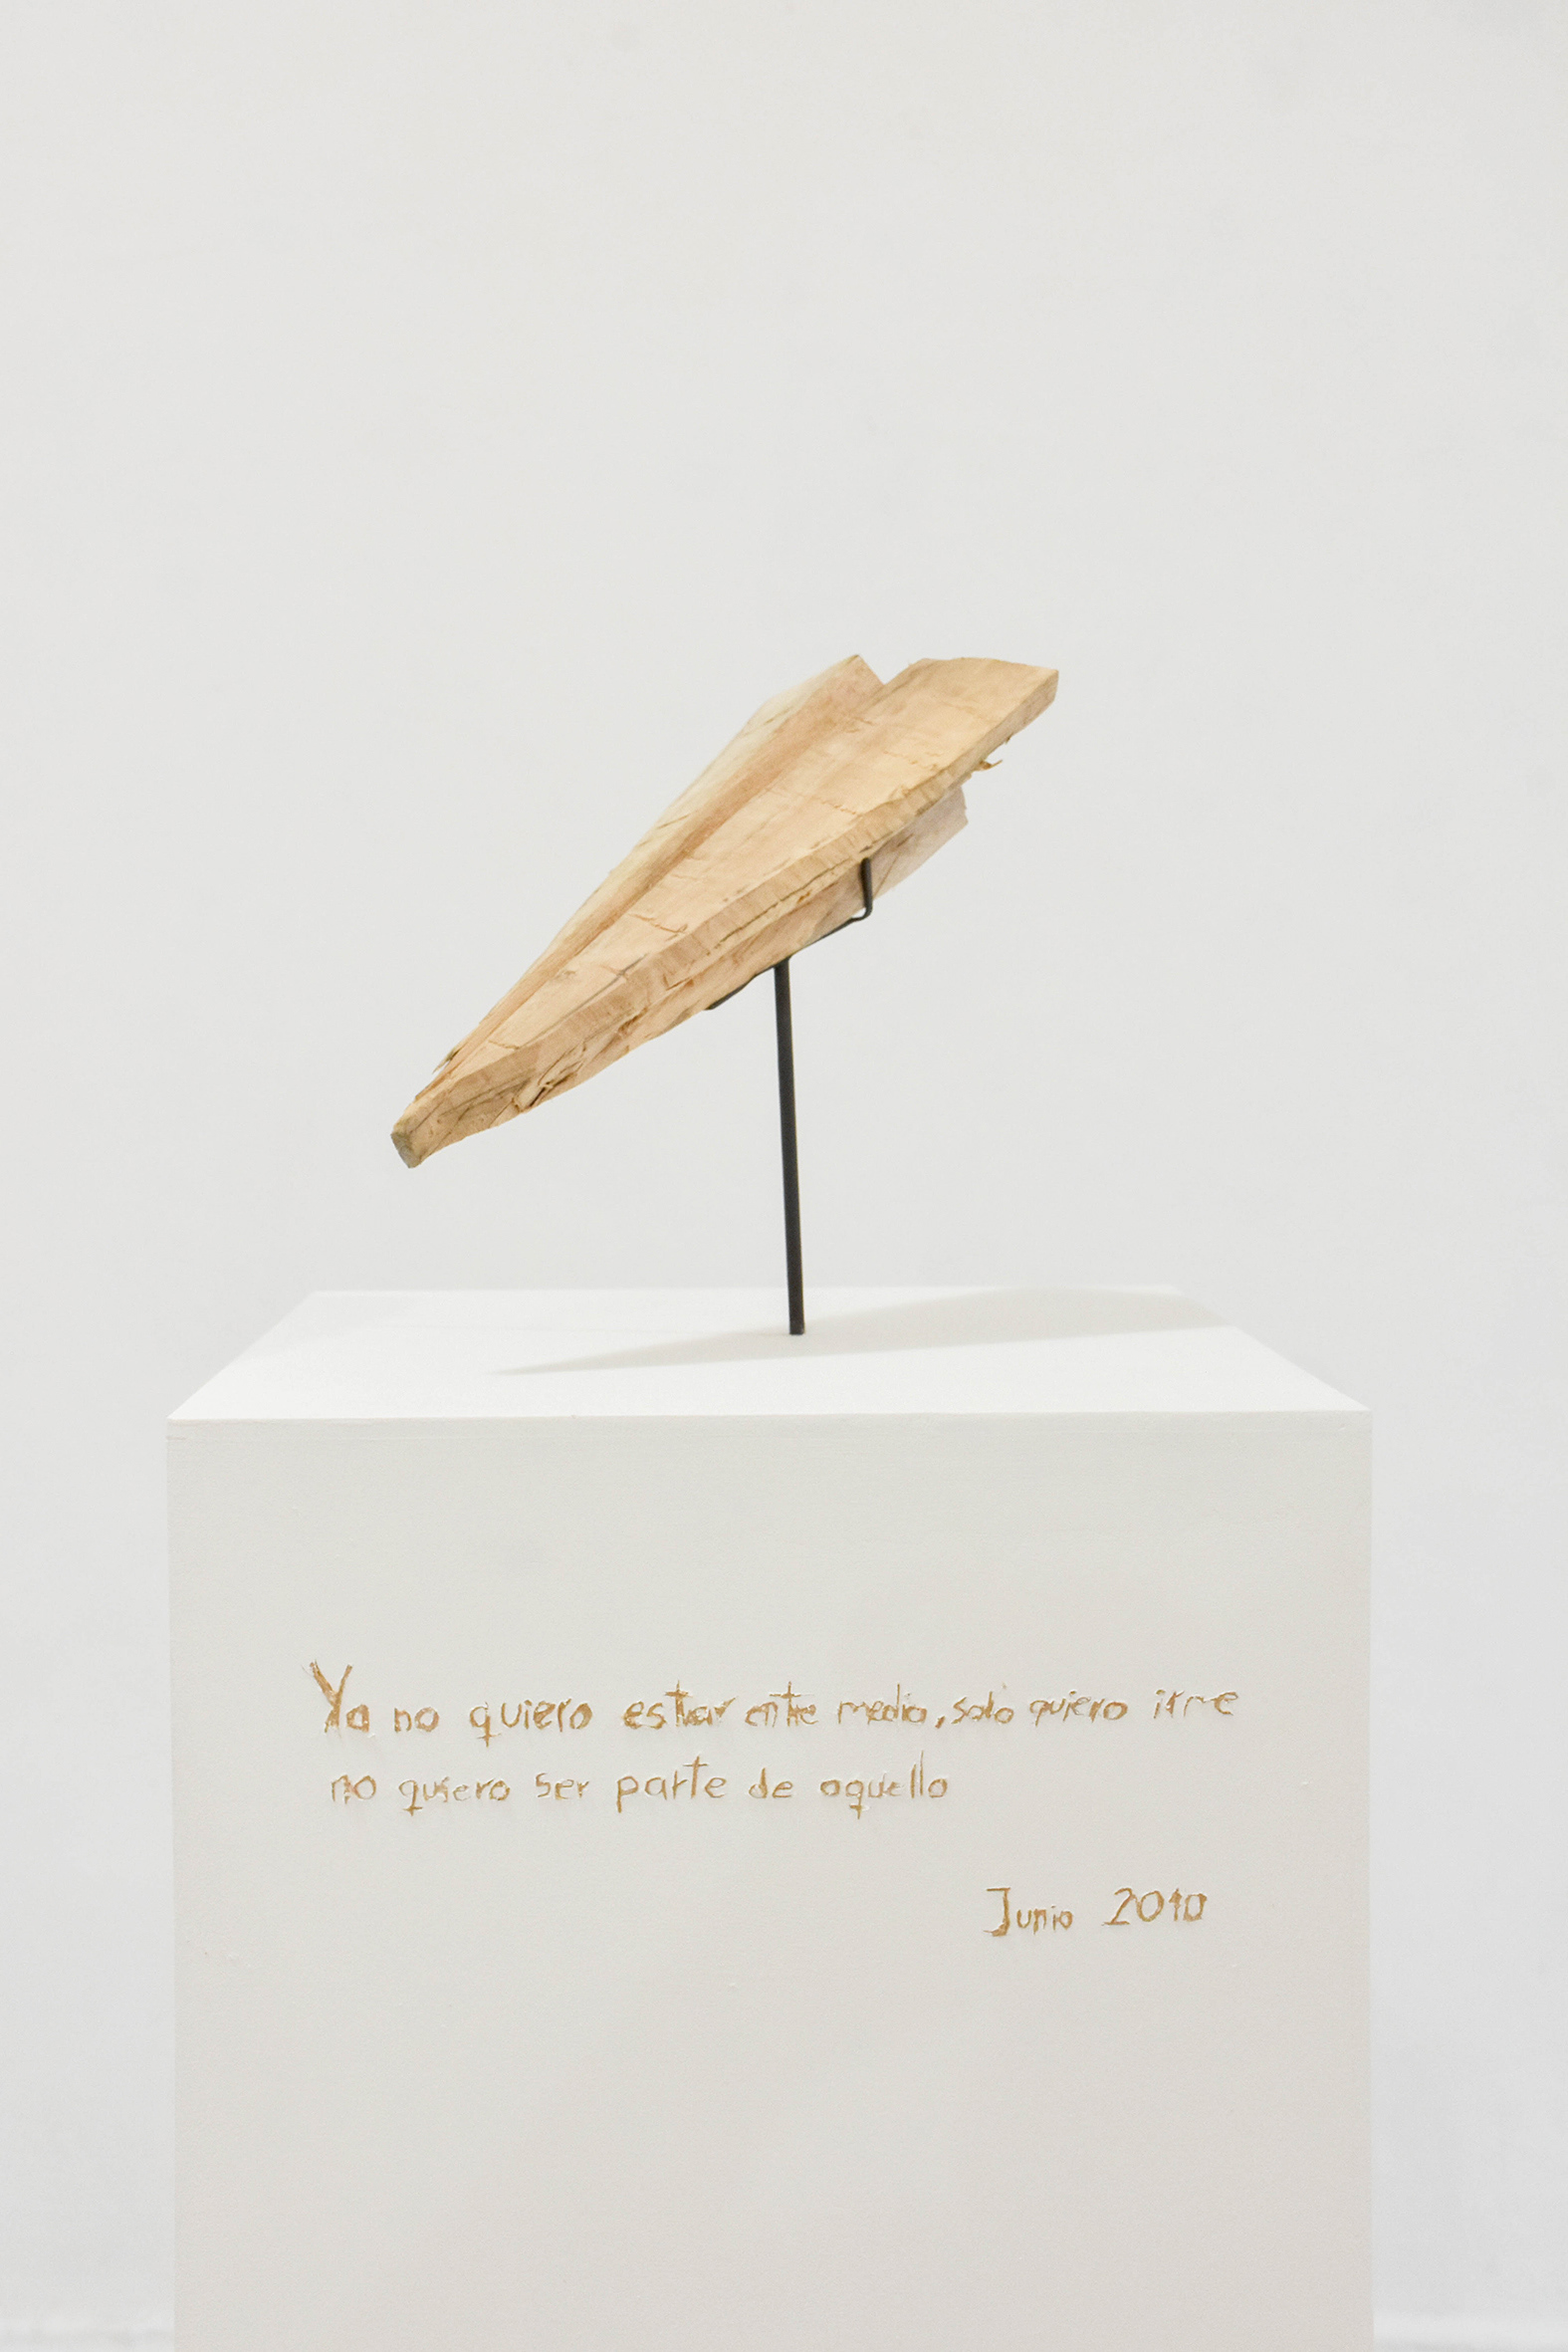 Ya no quiero estar entre medio, solo quiero irme
no quiero ser parte de aquello
Junio 2010